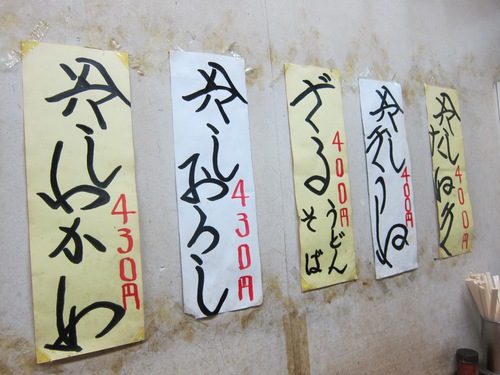 冷したぬき
400円
冷しきつね
400円
ざる
うどん
そば
400円
冷しおろし
430円
冷しわかめ
430円